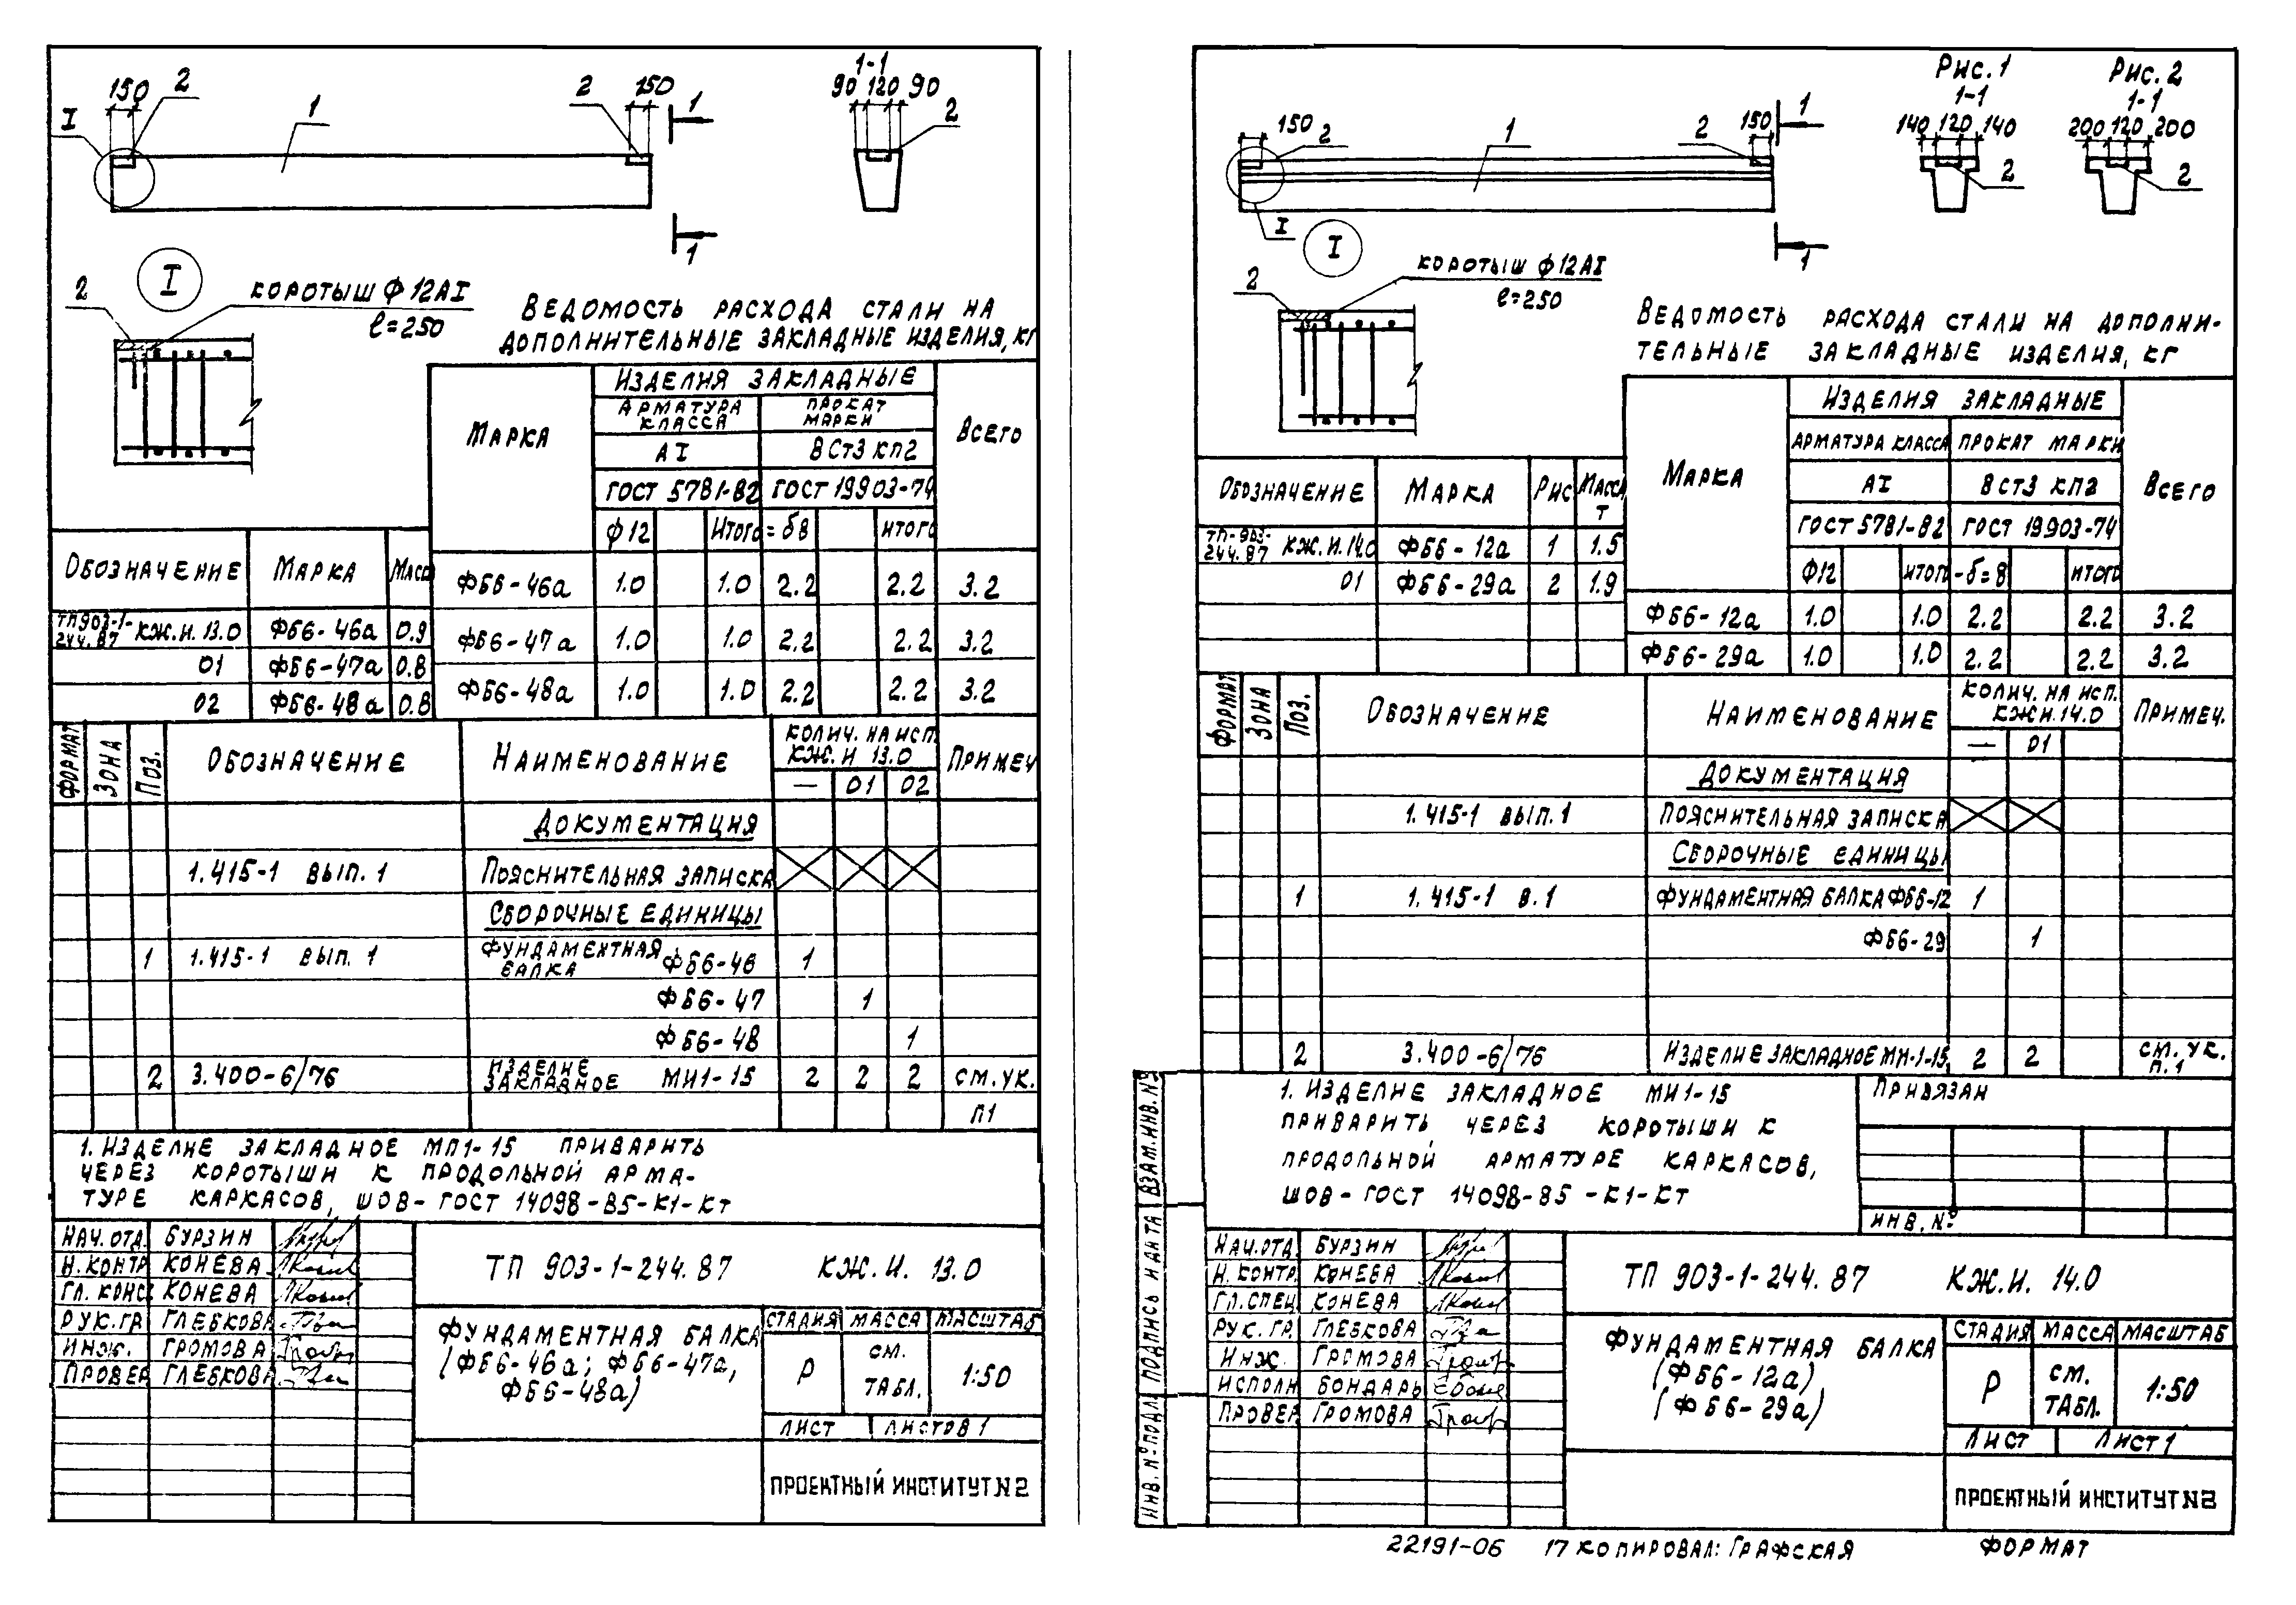 1-1
150 2 1 2 150 1
90 120 90
2
I
1
I
2
КОРОТЫШ Ф 12АI
ℓ=250
ВЕДОМОСТЬ РАСХОДА СТАЛИ НА
ДОПОЛНИТЕЛЬНЫЕ ЗАКЛАДНЫЕ ИЗДЕЛИЯ, КГ
МАРКА ИЗДЕЛИЯ ЗАКЛАДНЫЕ ВСЕГО
АРМАТУРА КЛАССА ПРОКАТ МАРКИ
АI ВСТ3 КП2
ГОСТ 5781-82 ГОСТ 19903-74
Ф12 ИТОГО =δ8 ИТОГО
ФБ6-46а 1.0 1.0 2.2 2.2 3.2
ФБ6-47а 1.0 1.0 2.2 2.2 3.2
ФБ6-48а 1.0 1.0 2.2 2.2 3.2
ОБОЗНАЧЕНИЕ МАРКА МАСС
ТП903-1-244.87 КЖ.И.13.0 ФБ6-46а 0.9
01 ФБ6-47а 0.8
02 ФБ6-48а 0.8
ФОРМАТ ЗОНА ПОЗ. ОБОЗНАЧЕНИЕ НАИМЕНОВАНИЕ КОЛИЧ. НА ИСП. КЖ.И 13.0 ПРИМЕЧ
— 01 02
ДОКУМЕНТАЦИЯ
1.415-1 ВЫП. 1 ПОЯСНИТЕЛЬНАЯ ЗАПИСКА
СБОРОЧНЫЕ ЕДИНИЦЫ
1 1.415-1 ВЫП. 1 ФУНДАМЕНТНАЯ БАЛКА ФБ6-46 1
ФБ6-47 1
ФБ6-48 1
2 3.400-6/76 ИЗДЕЛИЕ ЗАКЛАДНОЕ МИ1-15 2 2 2 СМ. УК.
П1
1. ИЗДЕЛИЕ ЗАКЛАДНОЕ МП1-15 ПРИВАРИТЬ
ЧЕРЕЗ КОРОТЫШИ К ПРОДОЛЬНОЙ АРМА-
ТУРЕ КАРКАСОВ, ШОВ-ГОСТ 14098-85-К1-КТ
НАЧ.ОТД. БУРЗИН
Н.КОНТР КОНЕВА
ГЛ. КОНС КОНЕВА
РУК.ГР ГЛЕБКОВА
ИНЖ. ГРОМОВА
ПРОВЕР ГЛЕБКОВА
ТП 903-1-244.87 КЖ.И. 13.0
ФУНДАМЕНТНАЯ БАЛКА
(ФБ6-46а; ФБ6-47а,
ФБ6-48а)
СТАДИЯ МАССА МАСШТАБ
Р СМ. ТАБЛ. 1:50
ЛИСТ ЛИСТОВ 1
ПРОЕКТНЫЙ ИНСТИТУТ N2
Рис. 1 Рис. 2
1-1 1-1
150 2 1 2 150 1
140 120 140 200 120 200
2 2
I
I
1
2
КОРОТЫШ Ф12АI
ℓ=250
ВЕДОМОСТЬ РАСХОДА СТАЛИ НА ДОПОЛНИ-
ТЕЛЬНЫЕ ЗАКЛАДНЫЕ ИЗДЕЛИЯ, КГ
МАРКА ИЗДЕЛИЯ ЗАКЛАДНЫЕ ВСЕГО
АРМАТУРА КЛАССА ПРОКАТ МАРКИ
АI ВСТ3 КП2
ГОСТ 5781-82 ГОСТ 19903-74
Ф12 ИТОГО -δ=8 ИТОГО
ФБ6-12а 1.0 1.0 2.2 2.2 3.2
ФБ6-29а 1.0 1.0 2.2 2.2 3.2
ОБОЗНАЧЕНИЕ МАРКА РИС МАССА Т
ТП-903-244.87 КЖ.И.14.0 ФБ6-12а 1 1.5
01 ФБ6-29а 2 1.9
ФОРМАТ ЗОНА ПОЗ. ОБОЗНАЧЕНИЕ НАИМЕНОВАНИЕ КОЛИЧ. НА ИСП. КЖИ.14.0 ПРИМЕЧ.
— 01
ДОКУМЕНТАЦИЯ
1.415-1 ВЫП. 1 ПОЯСНИТЕЛЬНАЯ ЗАПИСКА
СБОРОЧНЫЕ ЕДИНИЦЫ
1 1.415-1 В.1 ФУНДАМЕНТНАЯ БАЛКА ФБ6-12 1
ФБ6-29 1
2 3.400-6/76 ИЗДЕЛИЕ ЗАКЛАДНОЕ МИ-1-15 2 2 СМ. УК. П.1
1. ИЗДЕЛИЕ ЗАКЛАДНОЕ МИ1-15
ПРИВАРИТЬ ЧЕРЕЗ КОРОТЫШИ К
ПРОДОЛЬНОЙ АРМАТУРЕ КАРКАСОВ,
ШОВ-ГОСТ 14098-85-К1-КТ
ПРИВЯЗАН
ИНВ. №
ВЗАМ.ИНВ.№
ПОДПИСЬ И ДАТА
ИНВ. № ПОДЛ.
НАЧ.ОТД. БУРЗИН
Н. КОНТР КОНЕВА
ГЛ.СПЕЦ КОНЕВА
РУК. ГР. ГЛЕБКОВА
ИНЖ. ГРОМОВА
ИСПОЛН БОНДАРЬ
ПРОВЕР ГРОМОВА
ТП 903-1-244.87 КЖ.И. 14.0
ФУНДАМЕНТНАЯ БАЛКА
(ФБ6-12а)
(ФБ6-29а)
СТАДИЯ МАССА МАСШТАБ
Р СМ. ТАБЛ. 1:50
ЛИСТ ЛИСТ 1
ПРОЕКТНЫЙ ИНСТИТУТ N2
22191-06 17 КОПИРОВАЛ: ГРАФСКАЯ ФОРМАТ